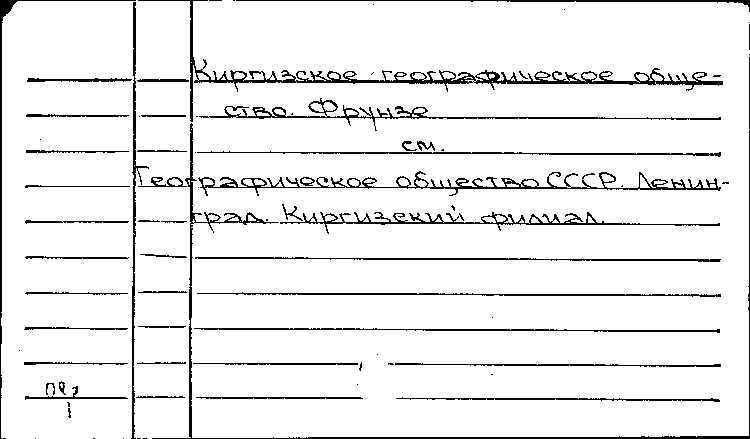 Киргизское географическое обще-
ство. Фрунзе
см.
Географическое общество СССР. Ленин-
град. Киргизский филиал.